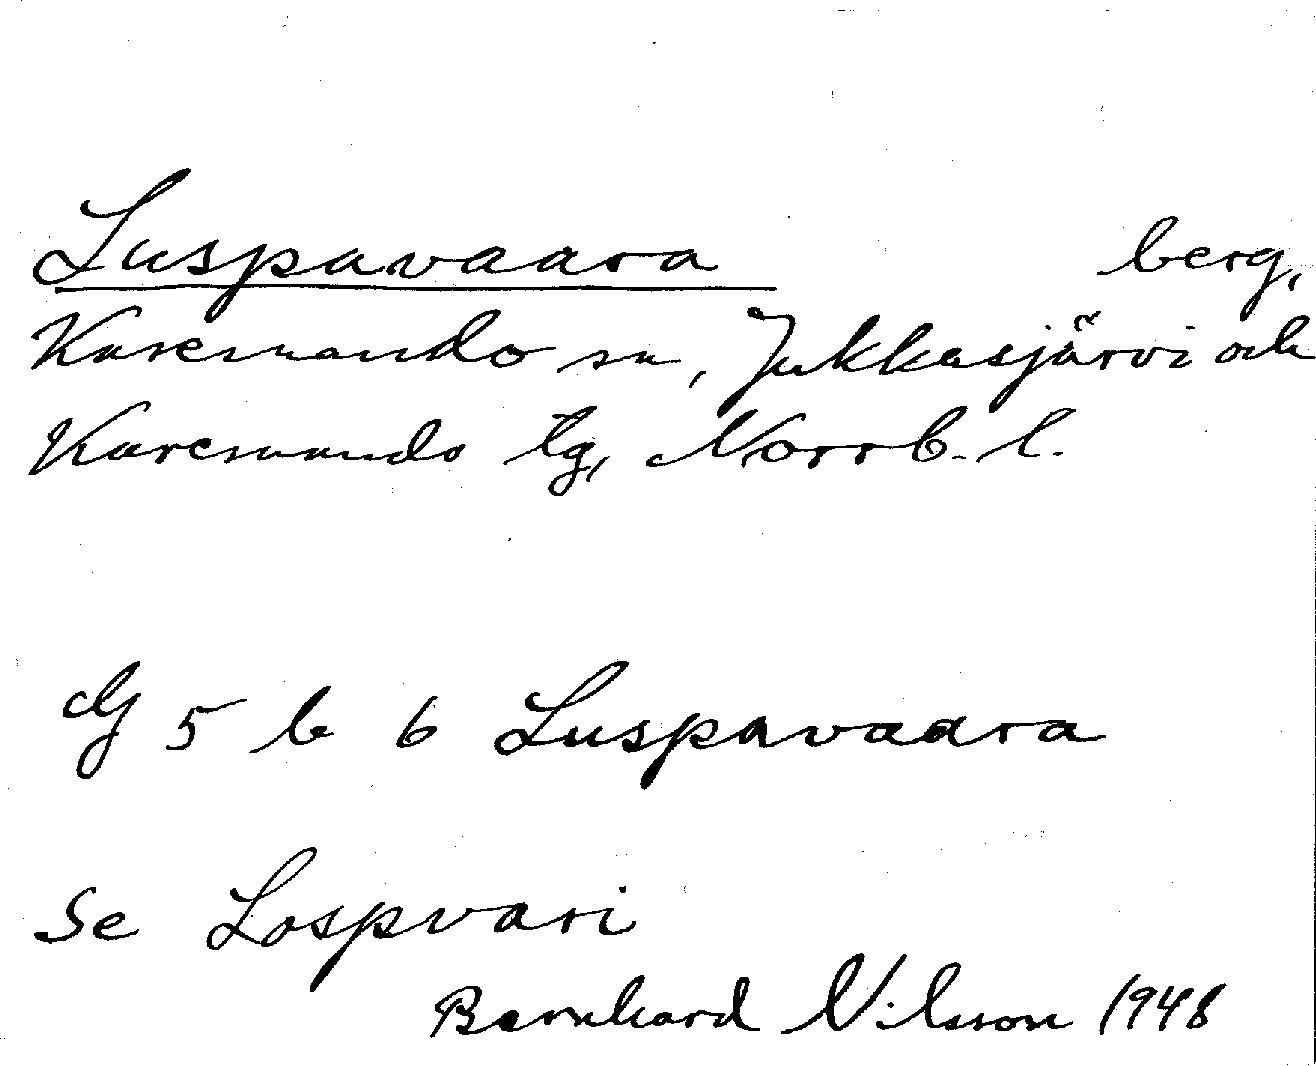 Luspavaara berg,
Karesuando sn, Jukkasjärvi och
Karesuando tg, Norrb. l.
G 5 b 6 Luspavaara
Se Lospvari
Bernhard Nilsson 1948